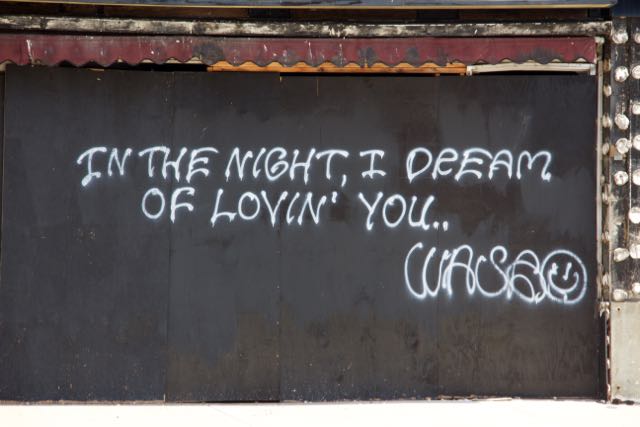 IN THE NIGHT, I DREAM
OF LOVIN' YOU..